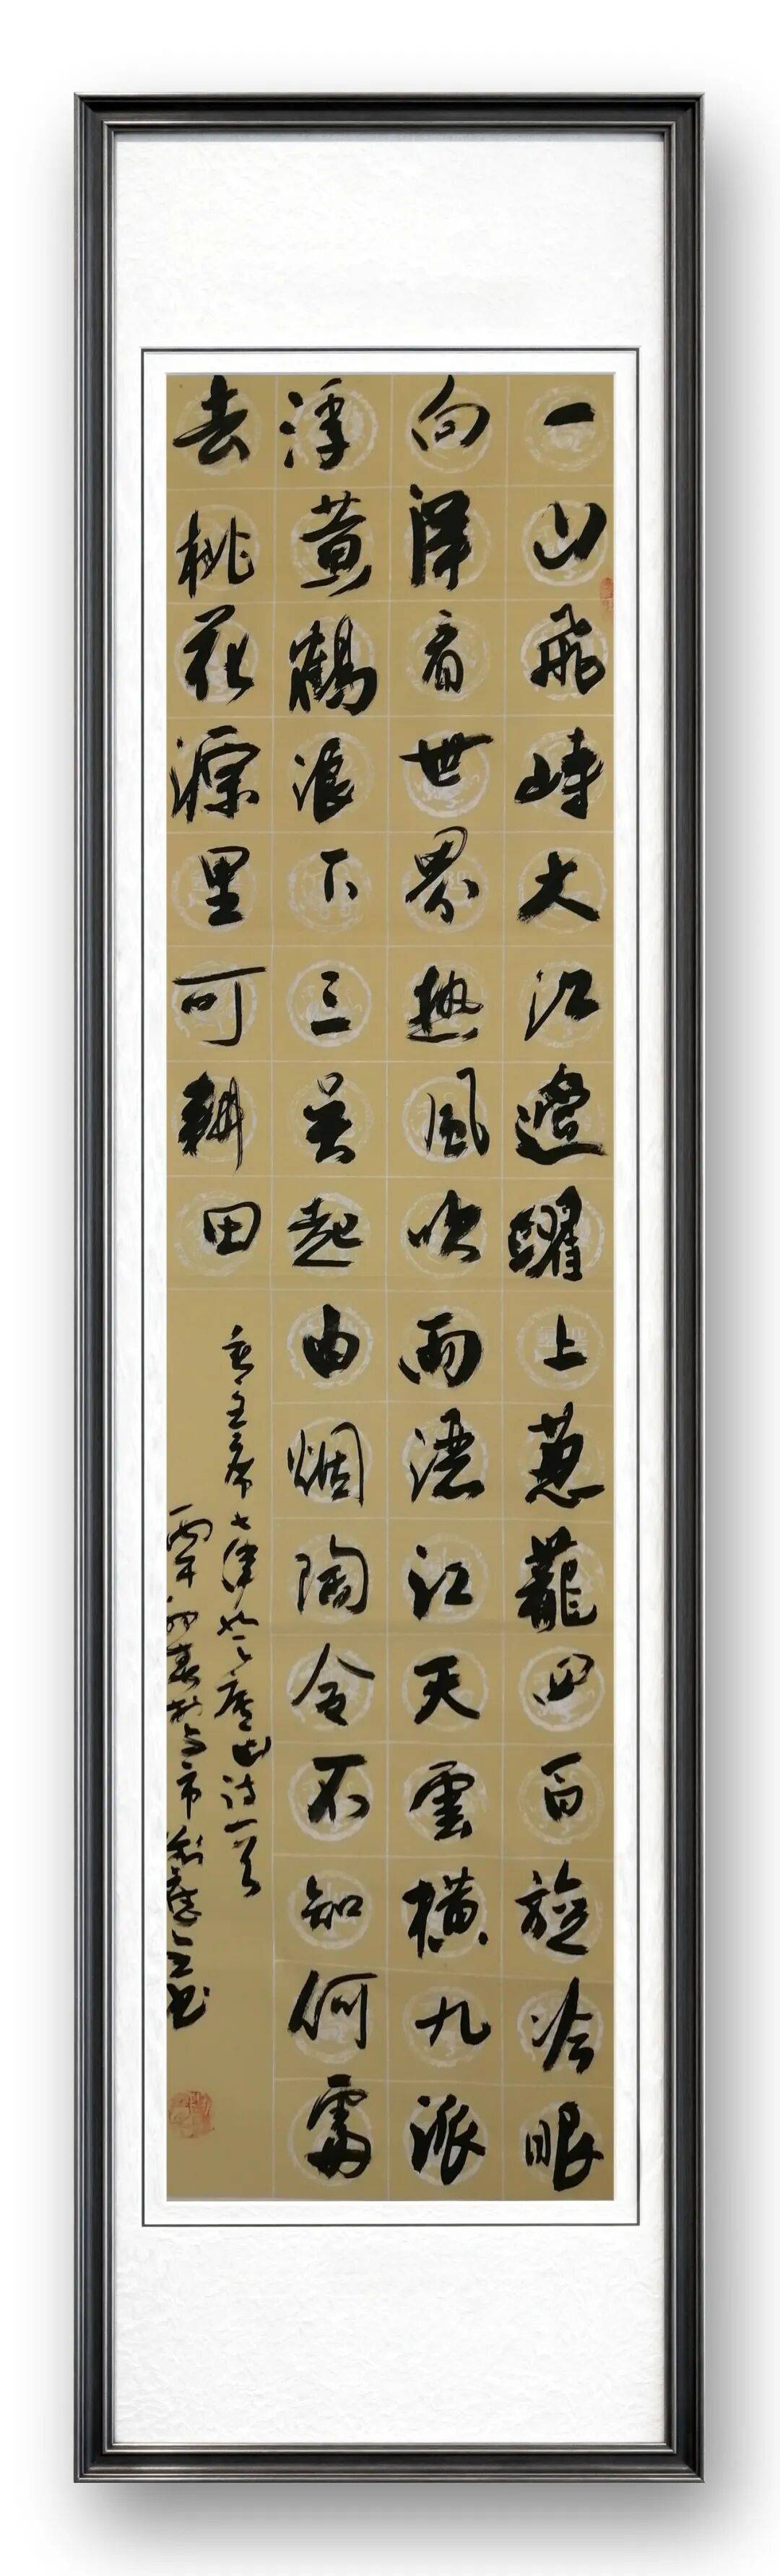 一山飛峙大江邊躍上葱蘢四百旋冷眼
向洋看世界热風吹雨灑江天雲橫九派
浮黄鶴浪下三吴起白烟陶令不知何處
去桃花源里可耕田
毛主席七律登廬山诗一首
丙午初春於市書